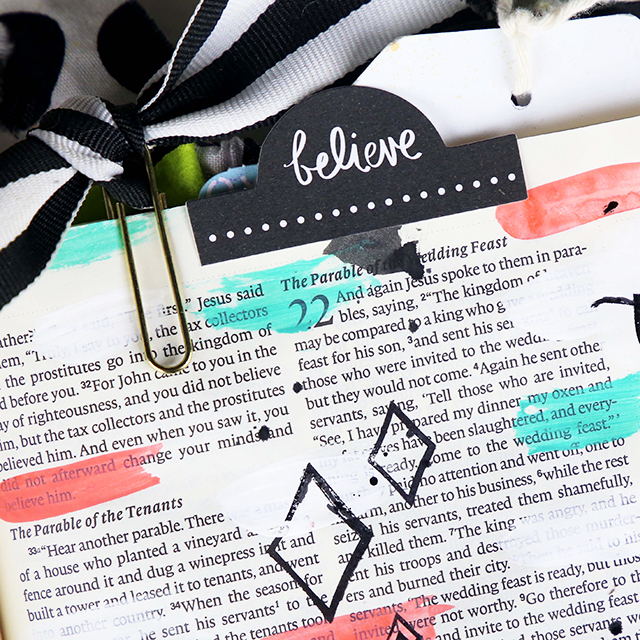 believe
first." Jesus said
the tax collectors
the prostitutes go into the kingdom of
before you. 32For John came to you in the
of righteousness, and you did not believe
him, but the tax collectors and the prostitutes
believed him. And even when you saw it, you
did not afterward change your minds and
believe him.
The Parable of the Tenants
33a"Hear another parable. There
of a house who planted a vineyard
fence around it and dug a winepress in it and
built a tower and leased it to tenants, and went
into another country. 34When the season for
he sent his servants to the
the tenants took
The Parable of the Wedding Feast
22 And again Jesus spoke to them in para-
bles, saying, 2"The kingdom of heaven
may be compared to a king who gave a wedding
feast for his son, 3and sent his
those who were invited to the wedding
but they would not come. 4Again he sent other
servants, saying, 'Tell those who are invited,
"See, I have prepared my dinner, my oxen and
have been slaughtered, and every-
ready. Come to the wedding feast."'
no attention and went off, one to
another to his business, 6while the rest
seized his servants, treated them shamefully,
and killed them. 7The king was angry, and he
sent his troops and destroyed those
and burned their city.
'The wedding feast is ready, but
invited were not worthy. 9Go therefore to
and invite to the wedding feast
servants